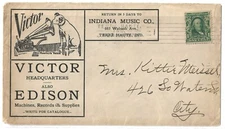 Victor
VICTOR
HEADQUARTERS
ALSO
EDISON
Machines, Records & Supplies
WRITE FOR CATALOGUE
RETURN IN 5 DAYS TO
INDIANA MUSIC CO.
Wabash Ave.
TERRE HAUTE, IND.
Mrs. Kitter Meisel
426 So
City